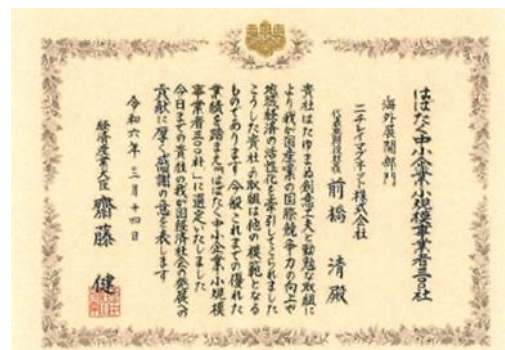 はばたく中小企業・小規模事業者三〇〇社
海外展開部門
ニチレイマグネット株式会社
代表取締役社長 前橋 清 殿
貴社はたゆまぬ創意工夫と勤勉な取組に
より我が国産業の国際競争力の向上や
地域経済の活性化を牽引してこられました
こうした貴社の取組は他の模範となる
ものであります 今般これまでの優れた
業績を踏まえ「はばたく中小企業・小規模
事業者三〇〇社」に選定いたしました
今日までの貴社の我が国経済社会の発展への
貢献に厚く感謝の意を表します
令和六年 三月 十四日
経済産業大臣 齋藤 健